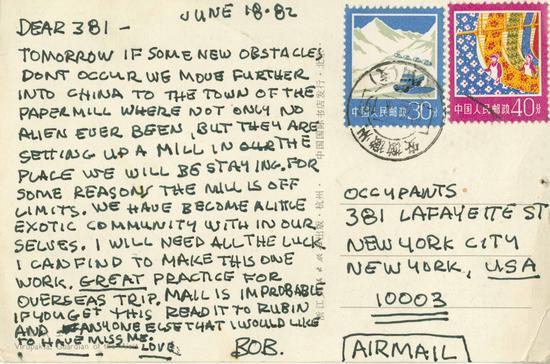 JUNE 18·82
DEAR 381 —
TOMORROW IF SOME NEW OBSTACLES
DONT OCCUR WE MOVE FURTHER
INTO CHINA TO THE TOWN OF THE
PAPERMILL WHERE NOT ONLY NO
ALIEN EVER BEEN, BUT THEY ARE
SETTING UP A MILL IN OUR THE
PLACE WE WILL BE STAYING. FOR
SOME REASON THE MILL IS OFF
LIMITS. WE HAVE BECOME A LITTLE
EXOTIC COMMUNITY WITH IN OUR
SELVES. I WILL NEED ALL THE LUCK
I CAN FIND TO MAKE THIS ONE
WORK. GREAT PRACTICE FOR
OVERSEAS TRIP. MAIL IS IMPROBABLE
IF YOU GET THIS READ IT TO RUBIN
AND ANYONE ELSE THAT I WOULD LIKE
TO HAVE MISS ME. LOVE, BOB.
Virupaksa, Guardian of
中国人民邮政 30分
中国人民邮政 40分
OCCUPANTS
381 LAFAYETTE ST
NEW YORK CITY
NEW YORK, USA
10003
AIRMAIL